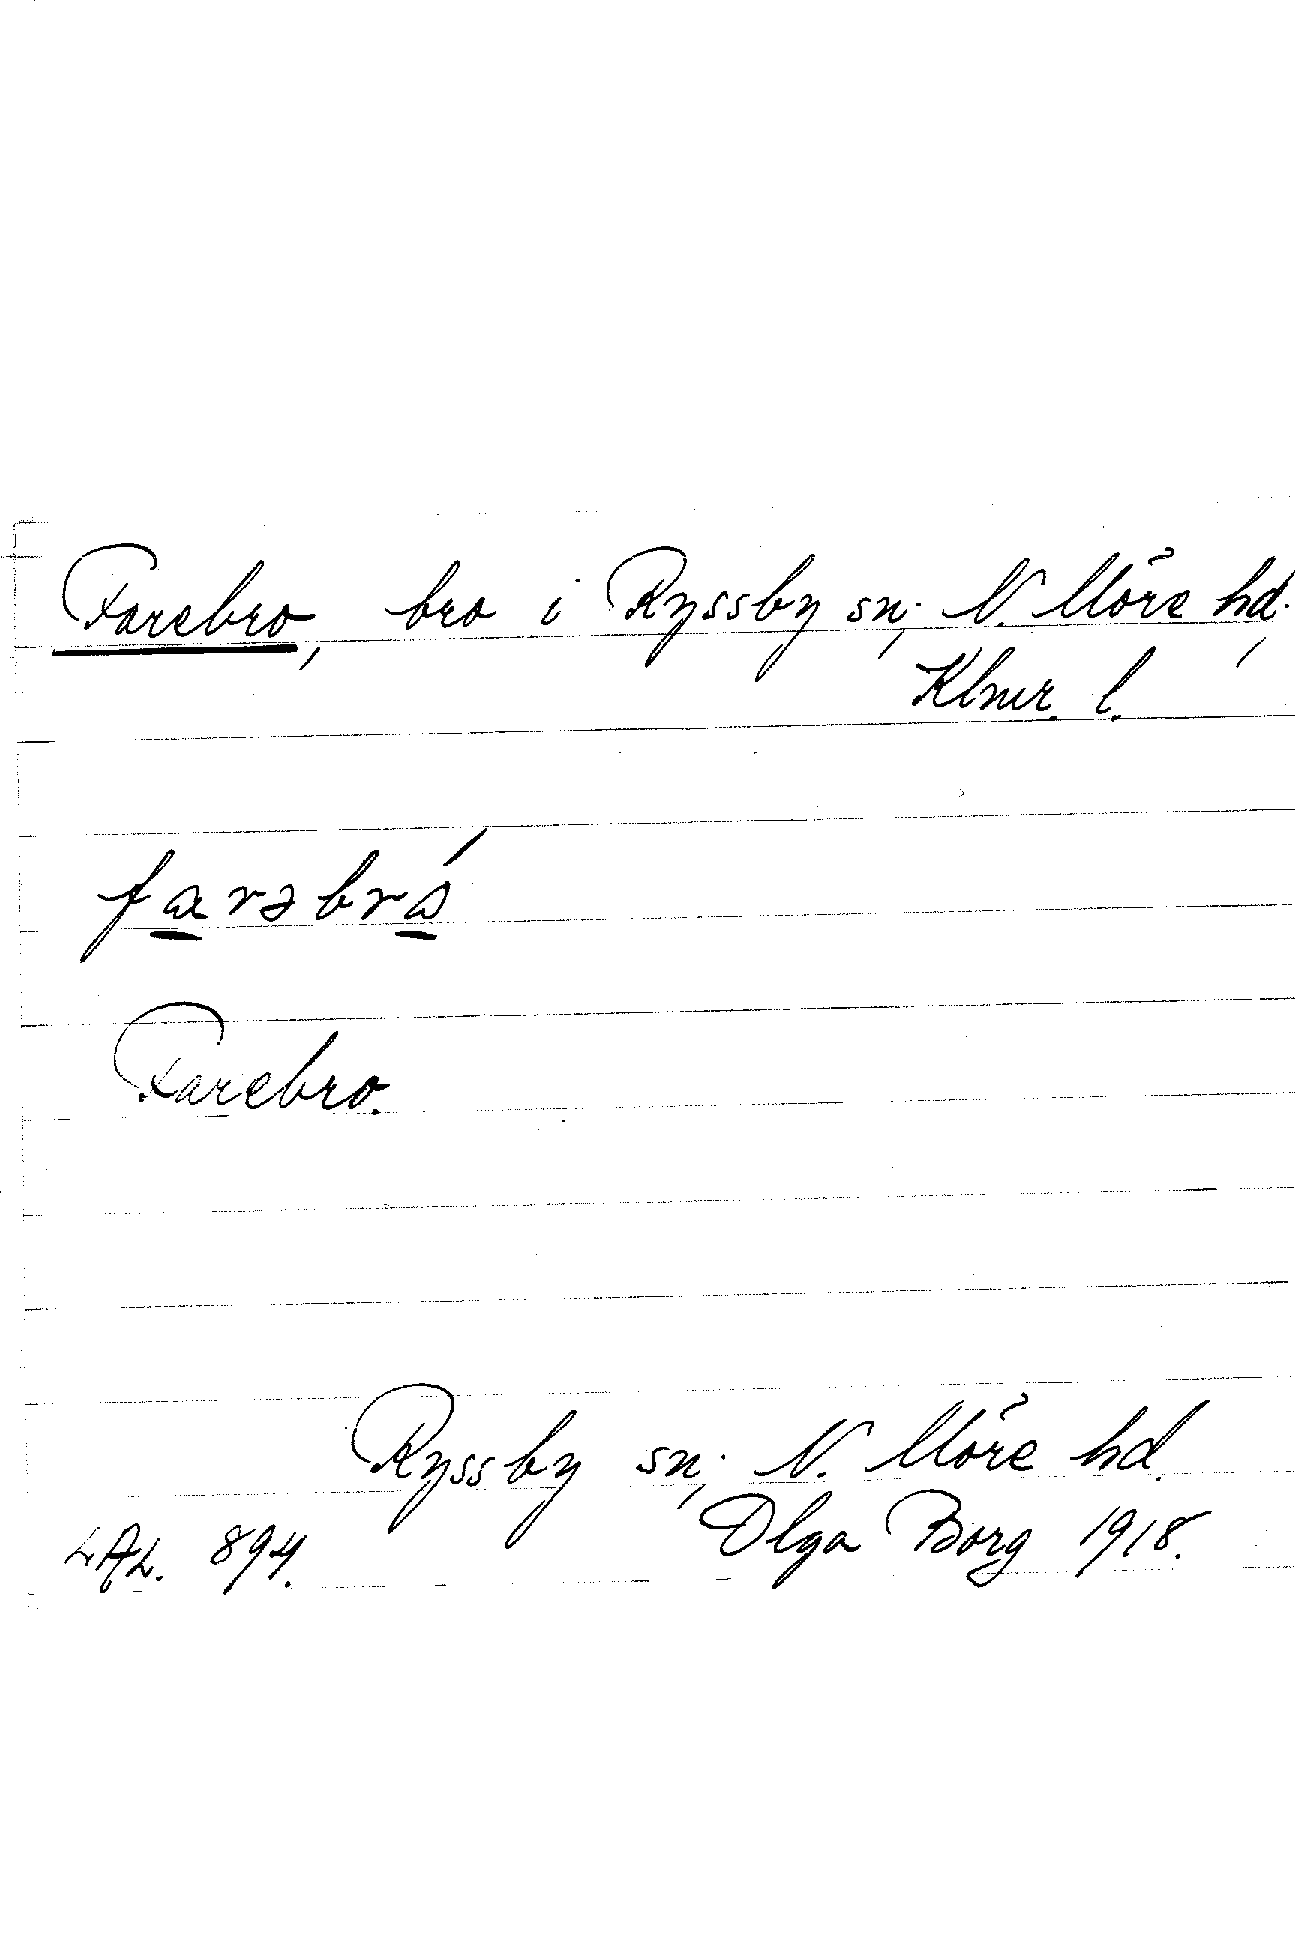 Farebro, bro i Ryssby sn, N. Möre hd,
Klmr. l.
farəbrɷ́
Farebro.
Ryssby sn, N. Möre hd.
LAL. 894.
Olga Borg 1918.